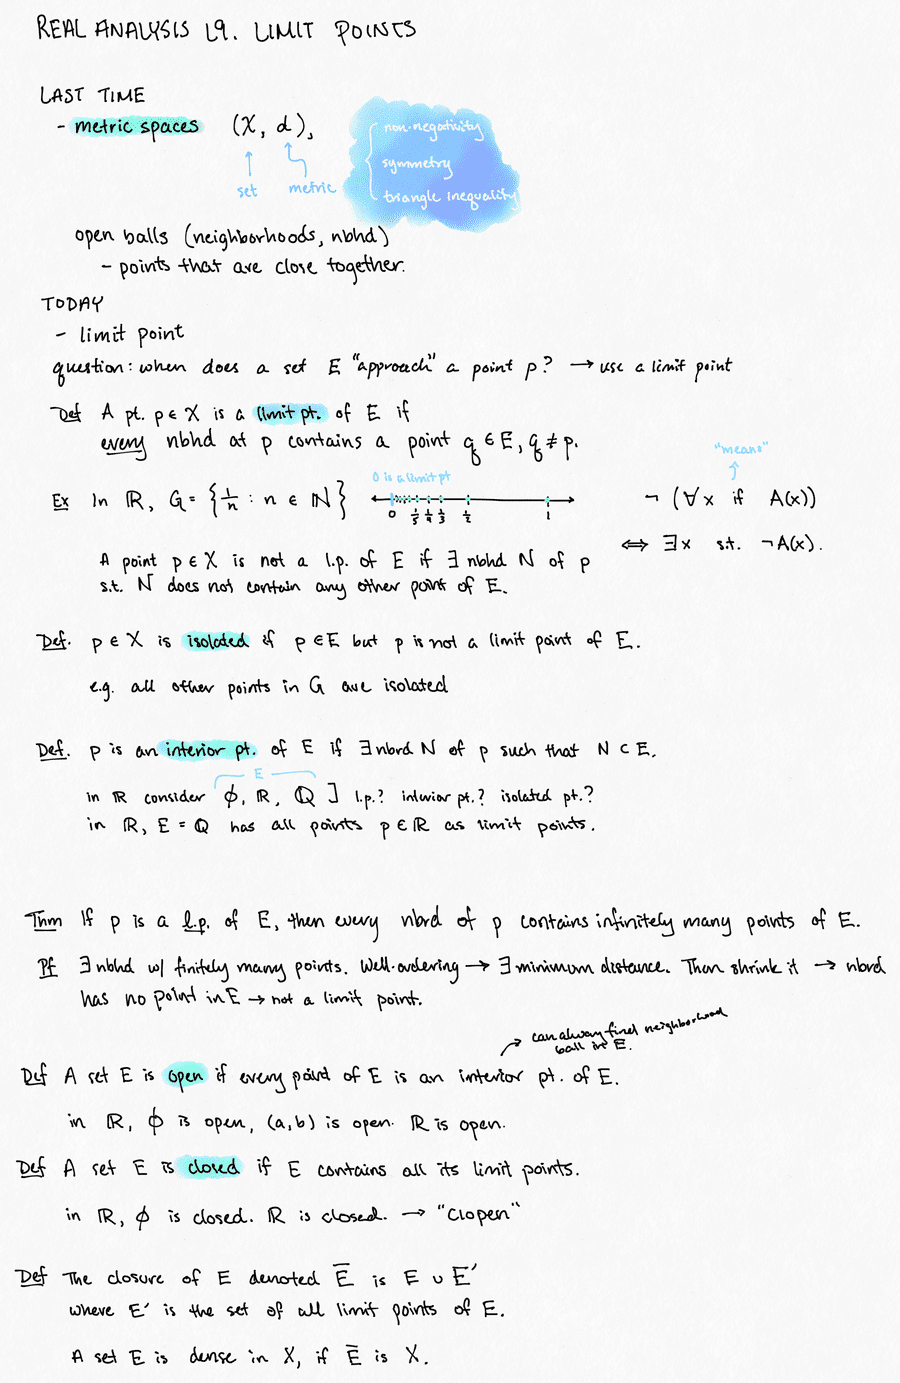 REAL ANALYSIS L9. LIMIT POINTS
LAST TIME
- metric spaces (X, d),
set metric
non-negativity
symmetry
triangle inequality
open balls (neighborhoods, nbhd)
- points that are close together.
TODAY
- limit point
question: when does a set E "approach" a point p? → use a limit point
Def A pt. p ∈ X is a limit pt. of E if
every nbhd at p contains a point q ∈ E, q ≠ p.
Ex In ℝ, G = {1/n : n ∈ ℕ}
0 is a limit pt
0 1/5 1/4 1/3 1/2 1
"means"
¬ (∀x if A(x))
⟺ ∃x s.t. ¬A(x).
A point p ∈ X is not a l.p. of E if ∃ nbhd N of p
s.t. N does not contain any other point of E.
Def. p ∈ X is isolated if p ∈ E but p is not a limit point of E.
e.g. all other points in G are isolated
Def. p is an interior pt. of E if ∃ nbrd N of p such that N ⊂ E.
E
in ℝ consider ϕ, ℝ, ℚ ] l.p.? interior pt.? isolated pt.?
in ℝ, E = ℚ has all points p ∈ ℝ as limit points.
Thm If p is a l.p. of E, then every nbrd of p contains infinitely many points of E.
Pf ∃ nbhd w/ finitely many points. Well-ordering → ∃ minimum distance. Then shrink it → nbrd
has no point in E → not a limit point.
→ can always find neighborhood
ball in E.
Def A set E is open if every point of E is an interior pt. of E.
in ℝ, ϕ is open, (a,b) is open. ℝ is open.
Def A set E is closed if E contains all its limit points.
in ℝ, ϕ is closed. ℝ is closed. → "clopen"
Def The closure of E denoted E̅ is E ∪ E′
where E′ is the set of all limit points of E.
A set E is dense in X, if E̅ is X.